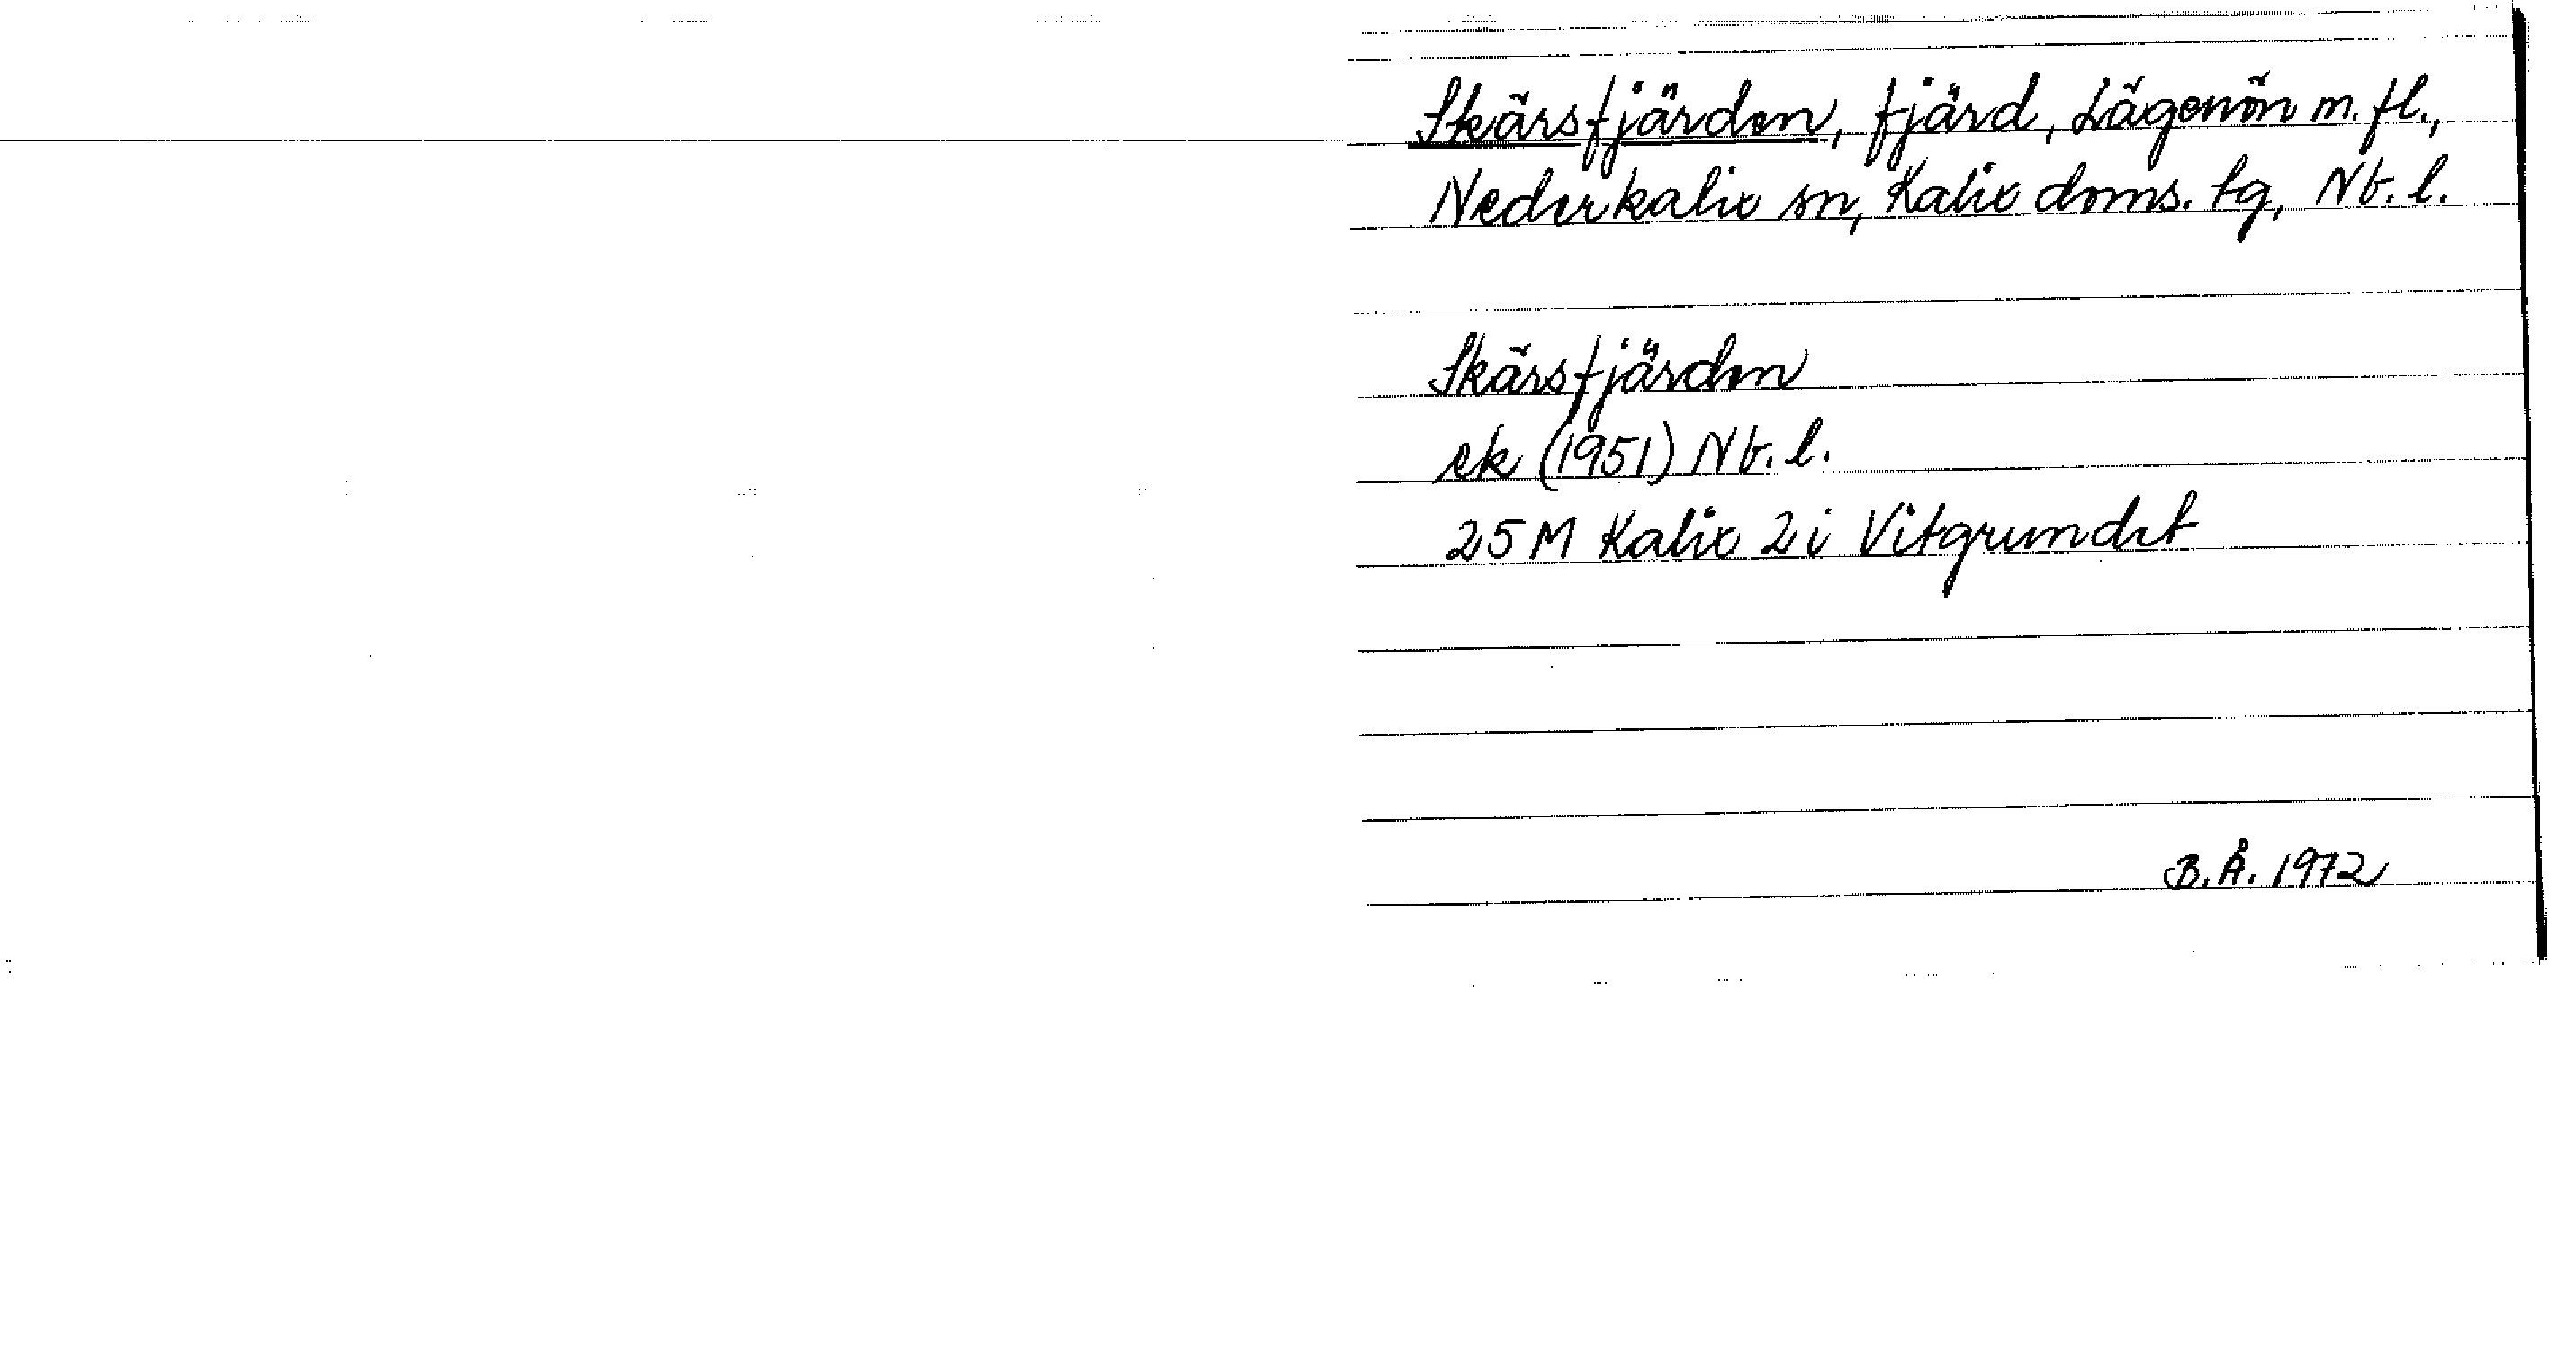 Skärsfjärden, fjärd, Lägenön m.fl.,
Nederkalix sn, Kalix doms. tg, Nb. l.
Skärsfjärden
ek (1951) Nb. l.
25 M Kalix 2 i Vitgrundet
B.Å. 1972